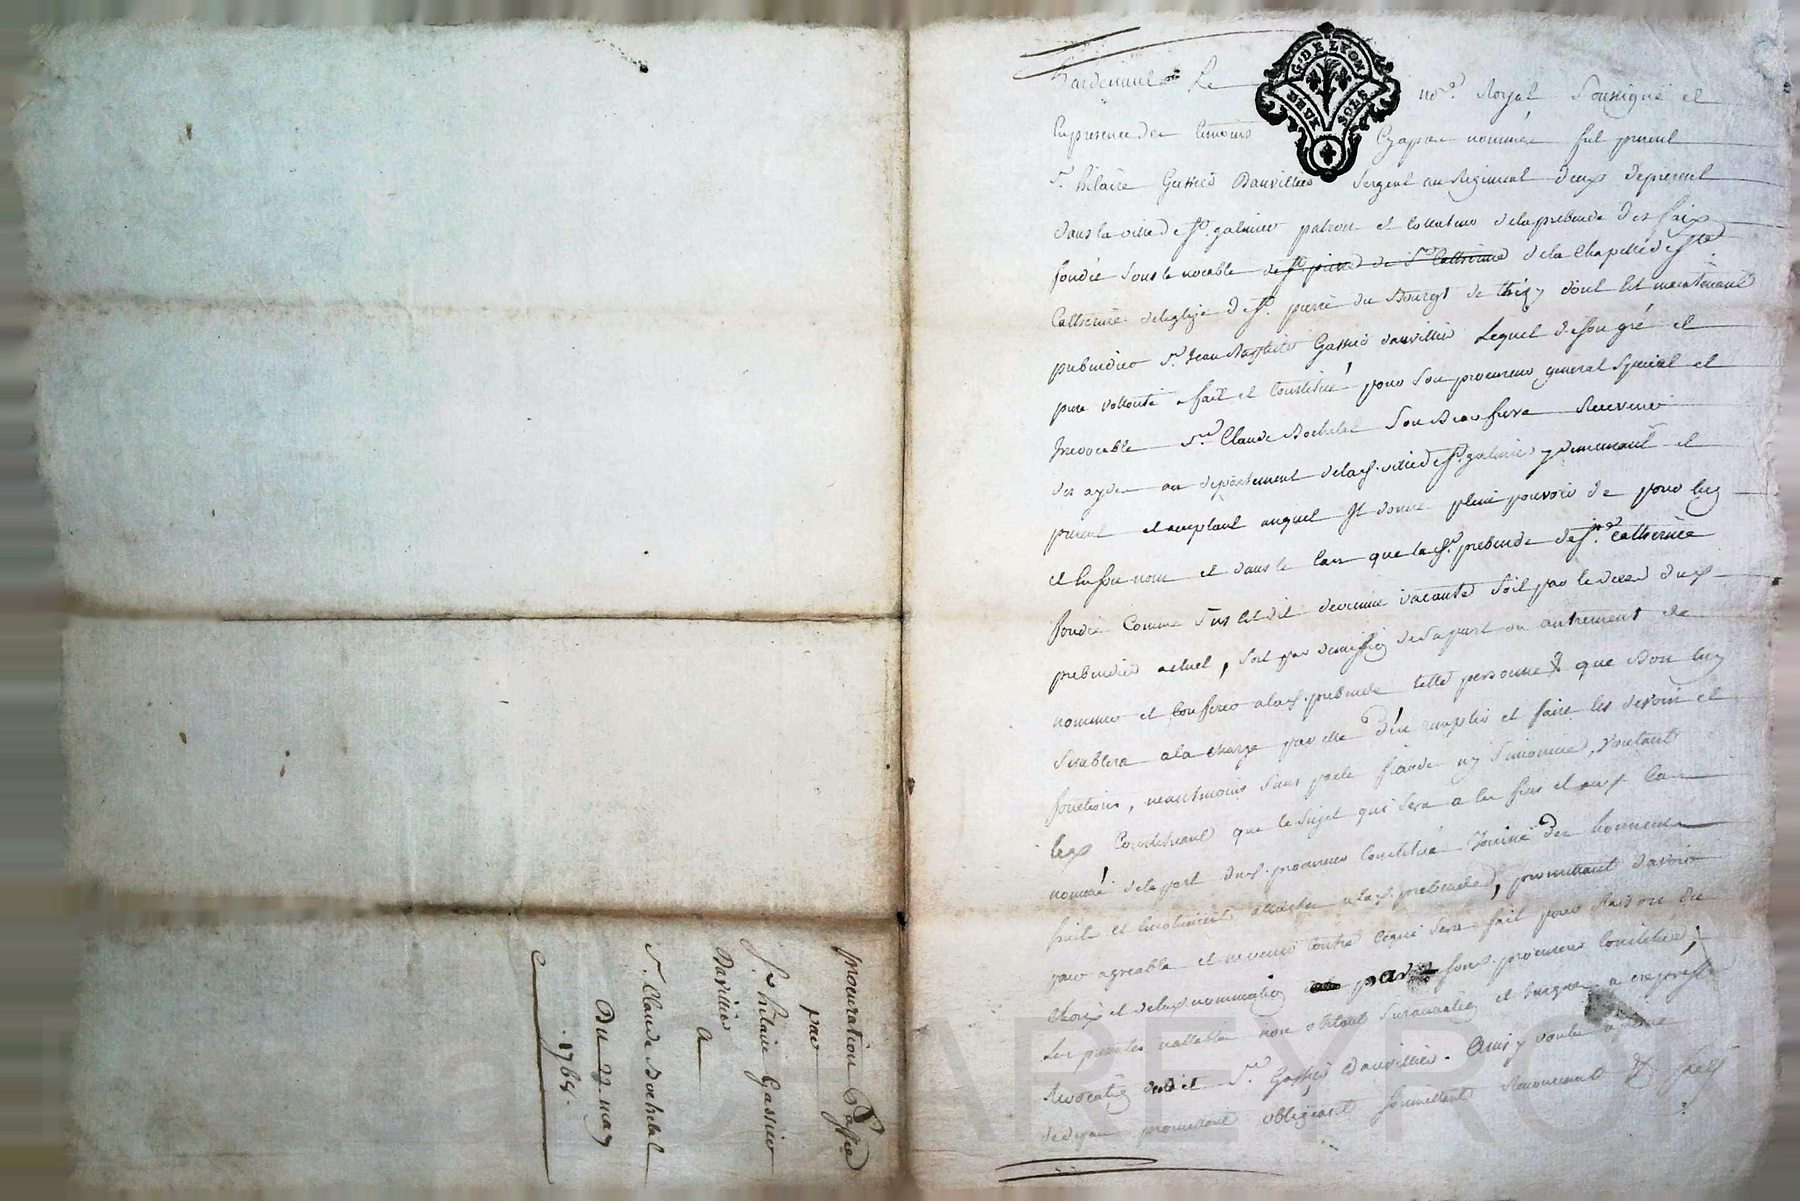 G. DE LYON
DEUX SOLS
Pardevant Le no.re Royal Soussigné et
En presence des temoins Cy apres nommés fut present
S.r hilaire Gassier Dauvillier Sergent au Regiment deux depresent
dans la ville de S.t galmier patron et Collateur de la prebende des faix
fondée sous le vocable de S.t pierre de S.te Catherine de la Chapelle de Ste
Catherine de leglize de S.t pierre du Bourgt de thizy dont Est maintenant
prebendier S.r Jean Baptiste Gassier dauvillier Lequel de Son gré et
pure vollonté a fait et Constitué pour Son procureur general Special et
Irrevocable S.r Claude Bochetal Son Beau frere Receveur
des aydes au departement de lad. ville de S.t galmier y demeurant et
present et acceptant auquel Il donne plein pouvoir de pour luy
et En Son nom et dans le Cas que lad. prebende de S.te Catherine
fondée Comme Sus Est dit devienne vacante Soit par le deces dud.
prebendier actuel, Soit par demission de Sa part ou autrement de
nommer et Conferer a lad. prebende telle personne que Bon luy
Semblera a la charge par elle d'En remplir et faire les devoirs et
fonctions, neantmoins Sans pacte fraude ny Simonie, voulant
led. Constituant que le Sujet qui Sera a les fins et aud. Cas
nommé de la part dud. procureur Constitué Jouisse des honneurs
fruit et Emolument attachés a lad. prebende, promettant d'avoir
pour agreable et revenir Contre Ce qui Sera fait pour Raison du
Choix et de lad. nomination par Sond. procureur Constitué,
Les presentes vallables non obstant Surannation et Jusques a expresse
Revocation dudit S.r Gassier Dauvillier. Ainsy voulu
promettant obligeant Soumettant Renonceant & fait
procuration Passée
par
S.r hilaire Gassier
Davillier
A
S.r Claude Bochetal
Du 22 may
1768.
CHAREYRON